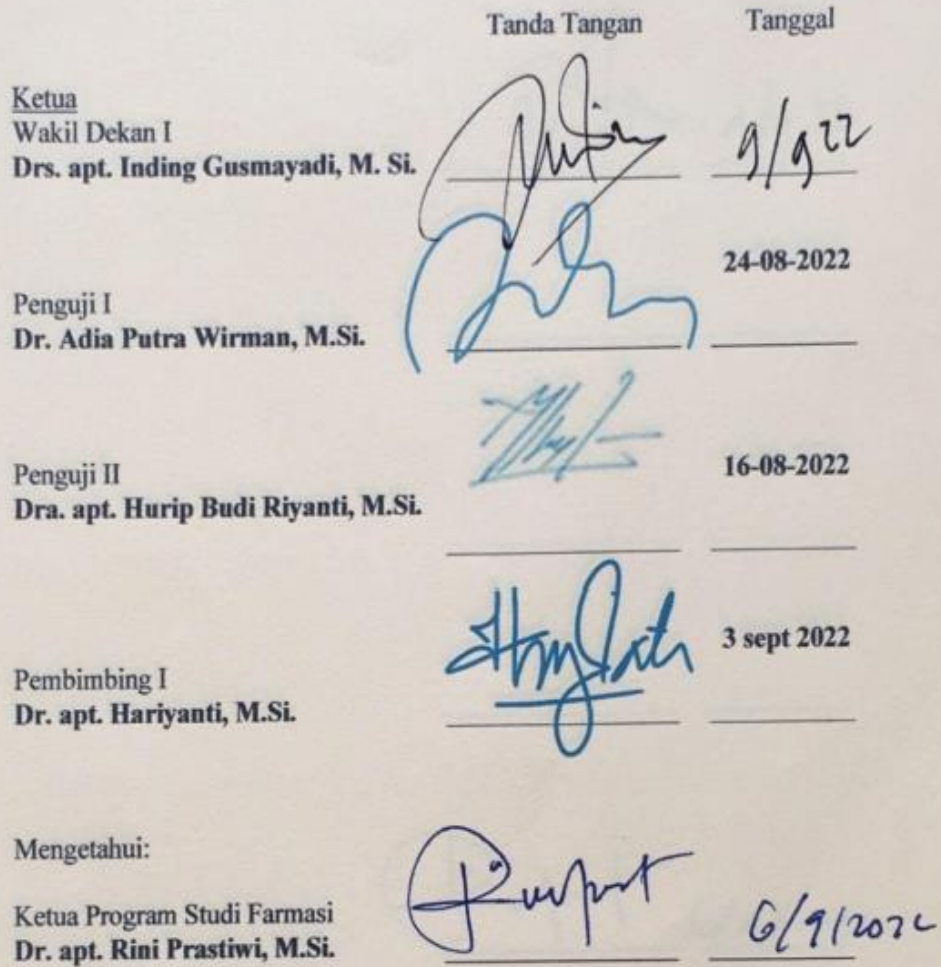 Tanda Tangan Tanggal
Ketua
Wakil Dekan I
Drs. apt. Inding Gusmayadi, M. Si.
9/9 22
24-08-2022
Penguji I
Dr. Adia Putra Wirman, M.Si.
16-08-2022
Penguji II
Dra. apt. Hurip Budi Riyanti, M.Si.
3 sept 2022
Pembimbing I
Dr. apt. Hariyanti, M.Si.
Mengetahui:
Ketua Program Studi Farmasi
Dr. apt. Rini Prastiwi, M.Si.
6/9/2022